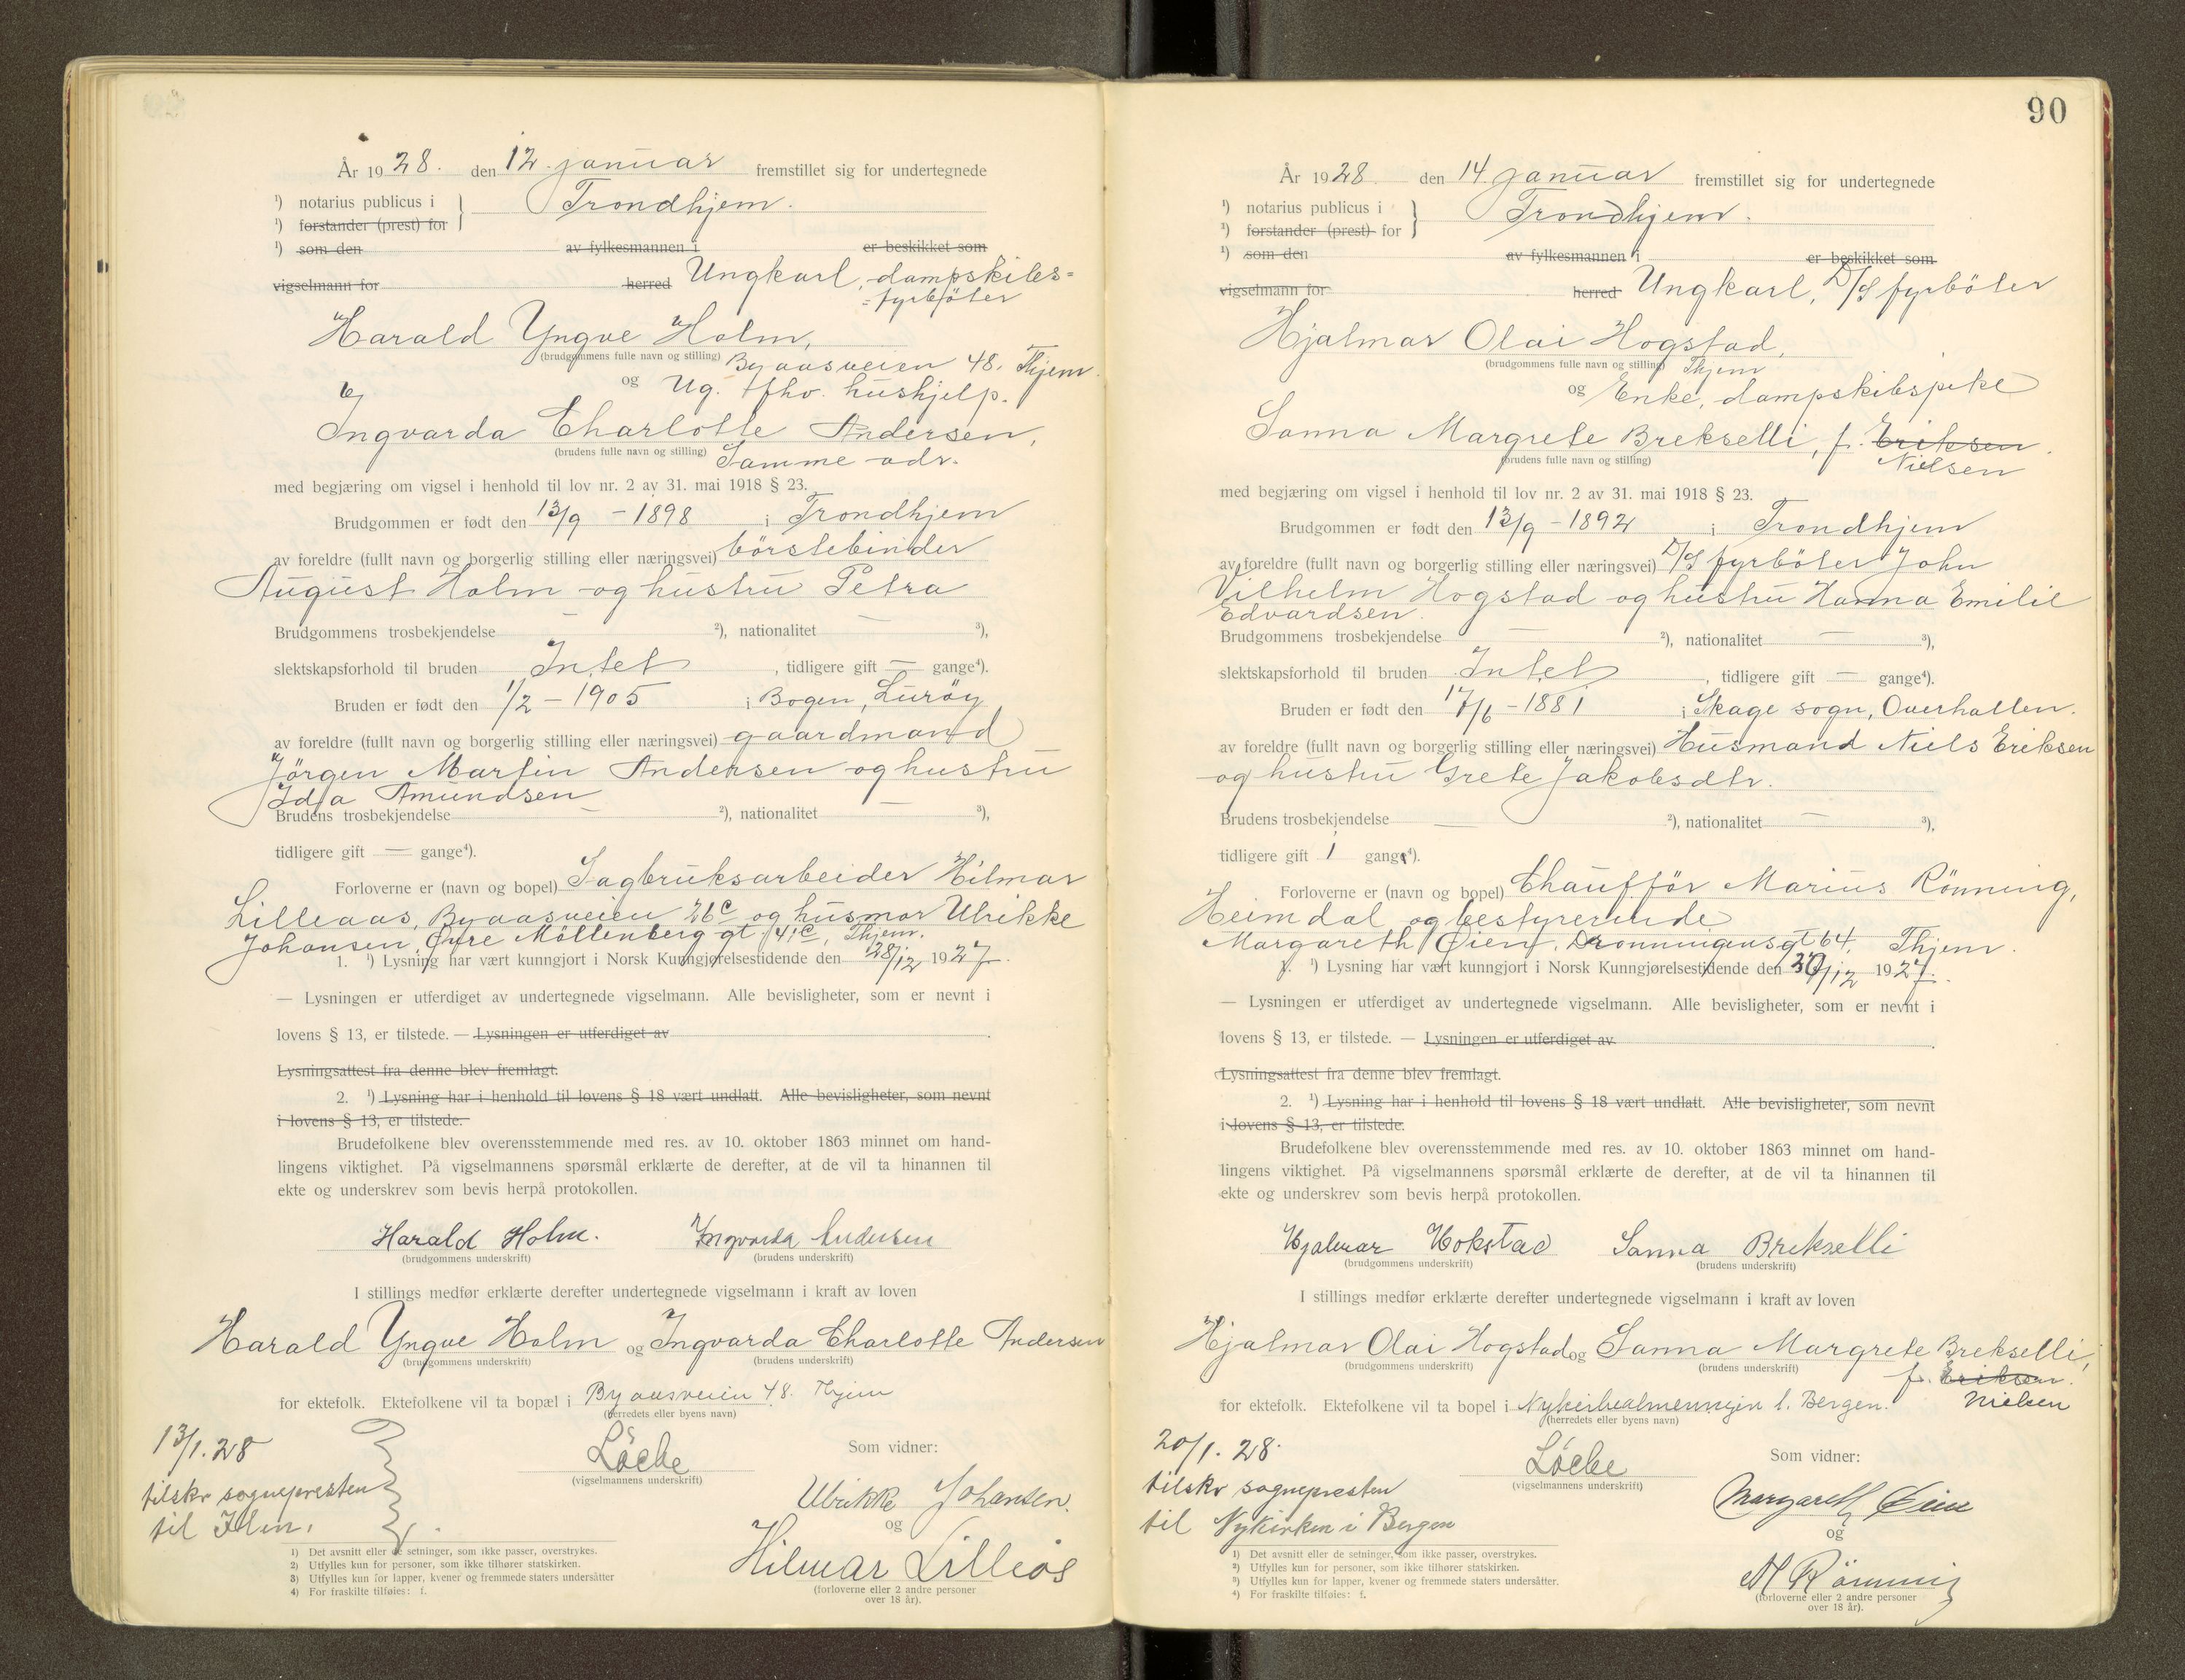 År 1928. den 12. januar fremstillet sig for undertegnede
¹) notarius publicus i } Trondhjem.
¹) forstander (prest) for
¹) som den av fylkesmannen i er beskikket som
vigselmann for herred Ungkarl, dampskibs=
=fyrböter
Harald Yngve Holm,
(brudgommens fulle navn og stilling) Byaasveien 48. Thjem.
og Ug. fhv. hushjelp.
Ingvarda Charlotte Andersen,
(brudens fulle navn og stilling) Samme adr.
med begjæring om vigsel i henhold til lov nr. 2 av 31. mai 1918 § 23.
Brudgommen er født den 13/9 - 1898 i Trondhjem
av foreldre (fullt navn og borgerlig stilling eller næringsvei) börstebinder
August Holm og hustru Petra
Brudgommens trosbekjendelse — ²), nationalitet — ³),
slektskapsforhold til bruden Intet, tidligere gift — gange⁴).
Bruden er født den 1/2 - 1905 i Bogen, Luröy
av foreldre (fullt navn og borgerlig stilling eller næringsvei) gaardmand
Jörgen Martin Andersen og hustru
Ida Amundsen
Brudens trosbekjendelse — ²), nationalitet — ³),
tidligere gift — gange⁴).
Forloverne er (navn og bopel) Sagbruksarbeider Hilmar
Lilleaas, Byaasveien 26c og husmor Ulrikke
Johansen, Øvre Möllenberg gt. 41c, Thjem.
1. ¹) Lysning har vært kunngjort i Norsk Kunngjørelsestidende den 28/12 1927.
— Lysningen er utferdiget av undertegnede vigselmann. Alle bevisligheter, som er nevnt i
lovens § 13, er tilstede. — Lysningen er utferdiget av .
Lysningsattest fra denne blev fremlagt.
2. ¹) Lysning har i henhold til lovens § 18 vært undlatt. Alle bevisligheter, som nevnt
i lovens § 13, er tilstede.
Brudefolkene blev overensstemmende med res. av 10. oktober 1863 minnet om hand-
lingens viktighet. På vigselmannens spørsmål erklærte de derefter, at de vil ta hinannen til
ekte og underskrev som bevis herpå protokollen.
Harald Holm. Ingvarda Andersen
(brudgommens underskrift) (brudens underskrift)
I stillings medfør erklærte derefter undertegnede vigselmann i kraft av loven
Harald Yngve Holm og Ingvarda Charlotte Andersen
(brudgommens underskrift) (brudens underskrift)
for ektefolk. Ektefolkene vil ta bopæl i Byaasveien 48. Thjem
(herredets eller byens navn)
13/1. 28
tilskr sognepresten
til Ilen.
Löcke
(vigselmannens underskrift)
Som vidner:
Ulrikke Johansen.
og
Hilmar Lilleås
(forloverne eller 2 andre personer
over 18 år).
1) Det avsnitt eller de setninger, som ikke passer, overstrykes.
2) Utfylles kun for personer, som ikke tilhører statskirken.
3) Utfylles kun for lapper, kvener og fremmede staters undersåtter
4) For fraskilte tilføies: f.
90
År 1928 den 14. januar fremstillet sig for undertegnede
¹) notarius publicus i } Trondhjem.
¹) forstander (prest) for
¹) som den av fylkesmannen i er beskikket som
vigselmann for herred Ungkarl, D/S fyrböter
Hjalmar Olai Hogstad,
(brudgommens fulle navn og stilling) Thjem
og Enke, dampskibspike
Sanna Margrete Brekselli, f. Eriksen.
(brudens fulle navn og stilling) Nielsen
med begjæring om vigsel i henhold til lov nr. 2 av 31. mai 1918 § 23.
Brudgommen er født den 13/9 - 1892 i Trondhjem
av foreldre (fullt navn og borgerlig stilling eller næringsvei) D/S fyrböter John
Vilhelm Hogstad og hustru Hanna Emilie
Edvardsen.
Brudgommens trosbekjendelse — ²), nationalitet — ³),
slektskapsforhold til bruden Intet, tidligere gift — gange⁴).
Bruden er født den 17/6 - 1881 i Skage sogn, Overhallen.
av foreldre (fullt navn og borgerlig stilling eller næringsvei) Husmand Niels Eriksen
og hustru Grete Jakobsdtr.
Brudens trosbekjendelse — ²), nationalitet — ³),
tidligere gift 1 gang⁴).
Forloverne er (navn og bopel) Chauffør Marius Rönning,
Heimdal og bestyrerinde
Margareth Øien, Dronningensgt 64, Thjem.
1. ¹) Lysning har vært kunngjort i Norsk Kunngjørelsestidende den 30/12 1927.
— Lysningen er utferdiget av undertegnede vigselmann. Alle bevisligheter, som er nevnt i
lovens § 13, er tilstede. — Lysningen er utferdiget av .
Lysningsattest fra denne blev fremlagt.
2. ¹) Lysning har i henhold til lovens § 18 vært undlatt. Alle bevisligheter, som nevnt
i lovens § 13, er tilstede.
Brudefolkene blev overensstemmende med res. av 10. oktober 1863 minnet om hand-
lingens viktighet. På vigselmannens spørsmål erklærte de derefter, at de vil ta hinannen til
ekte og underskrev som bevis herpå protokollen.
Hjalmar Hokstad Sanna Brekselli
(brudgommens underskrift) (brudens underskrift)
I stillings medfør erklærte derefter undertegnede vigselmann i kraft av loven
Hjalmar Olai Hogstad og Sanna Margrete Brekselli,
(brudgommens underskrift) (brudens underskrift) f. Eriksen.
for ektefolk. Ektefolkene vil ta bopel i Nykirkealmenningen 1. Bergen. Nielsen
(herredets eller byens navn)
20/1. 28.
tilskr sognepresten
til Nykirken i Bergen
Löcke
(vigselmannens underskrift)
Som vidner:
Margareth Øien
og
M Rönning
(forloverne eller 2 andre personer
over 18 år).
¹) Det avsnitt eller de setninger, som ikke passer, overstrykes.
²) Utfylles kun for personer, som ikke tilhører statskirken.
³) Utfylles kun for lapper, kvener og fremmede staters undersåtter.
⁴) For fraskilte tilføies: f.